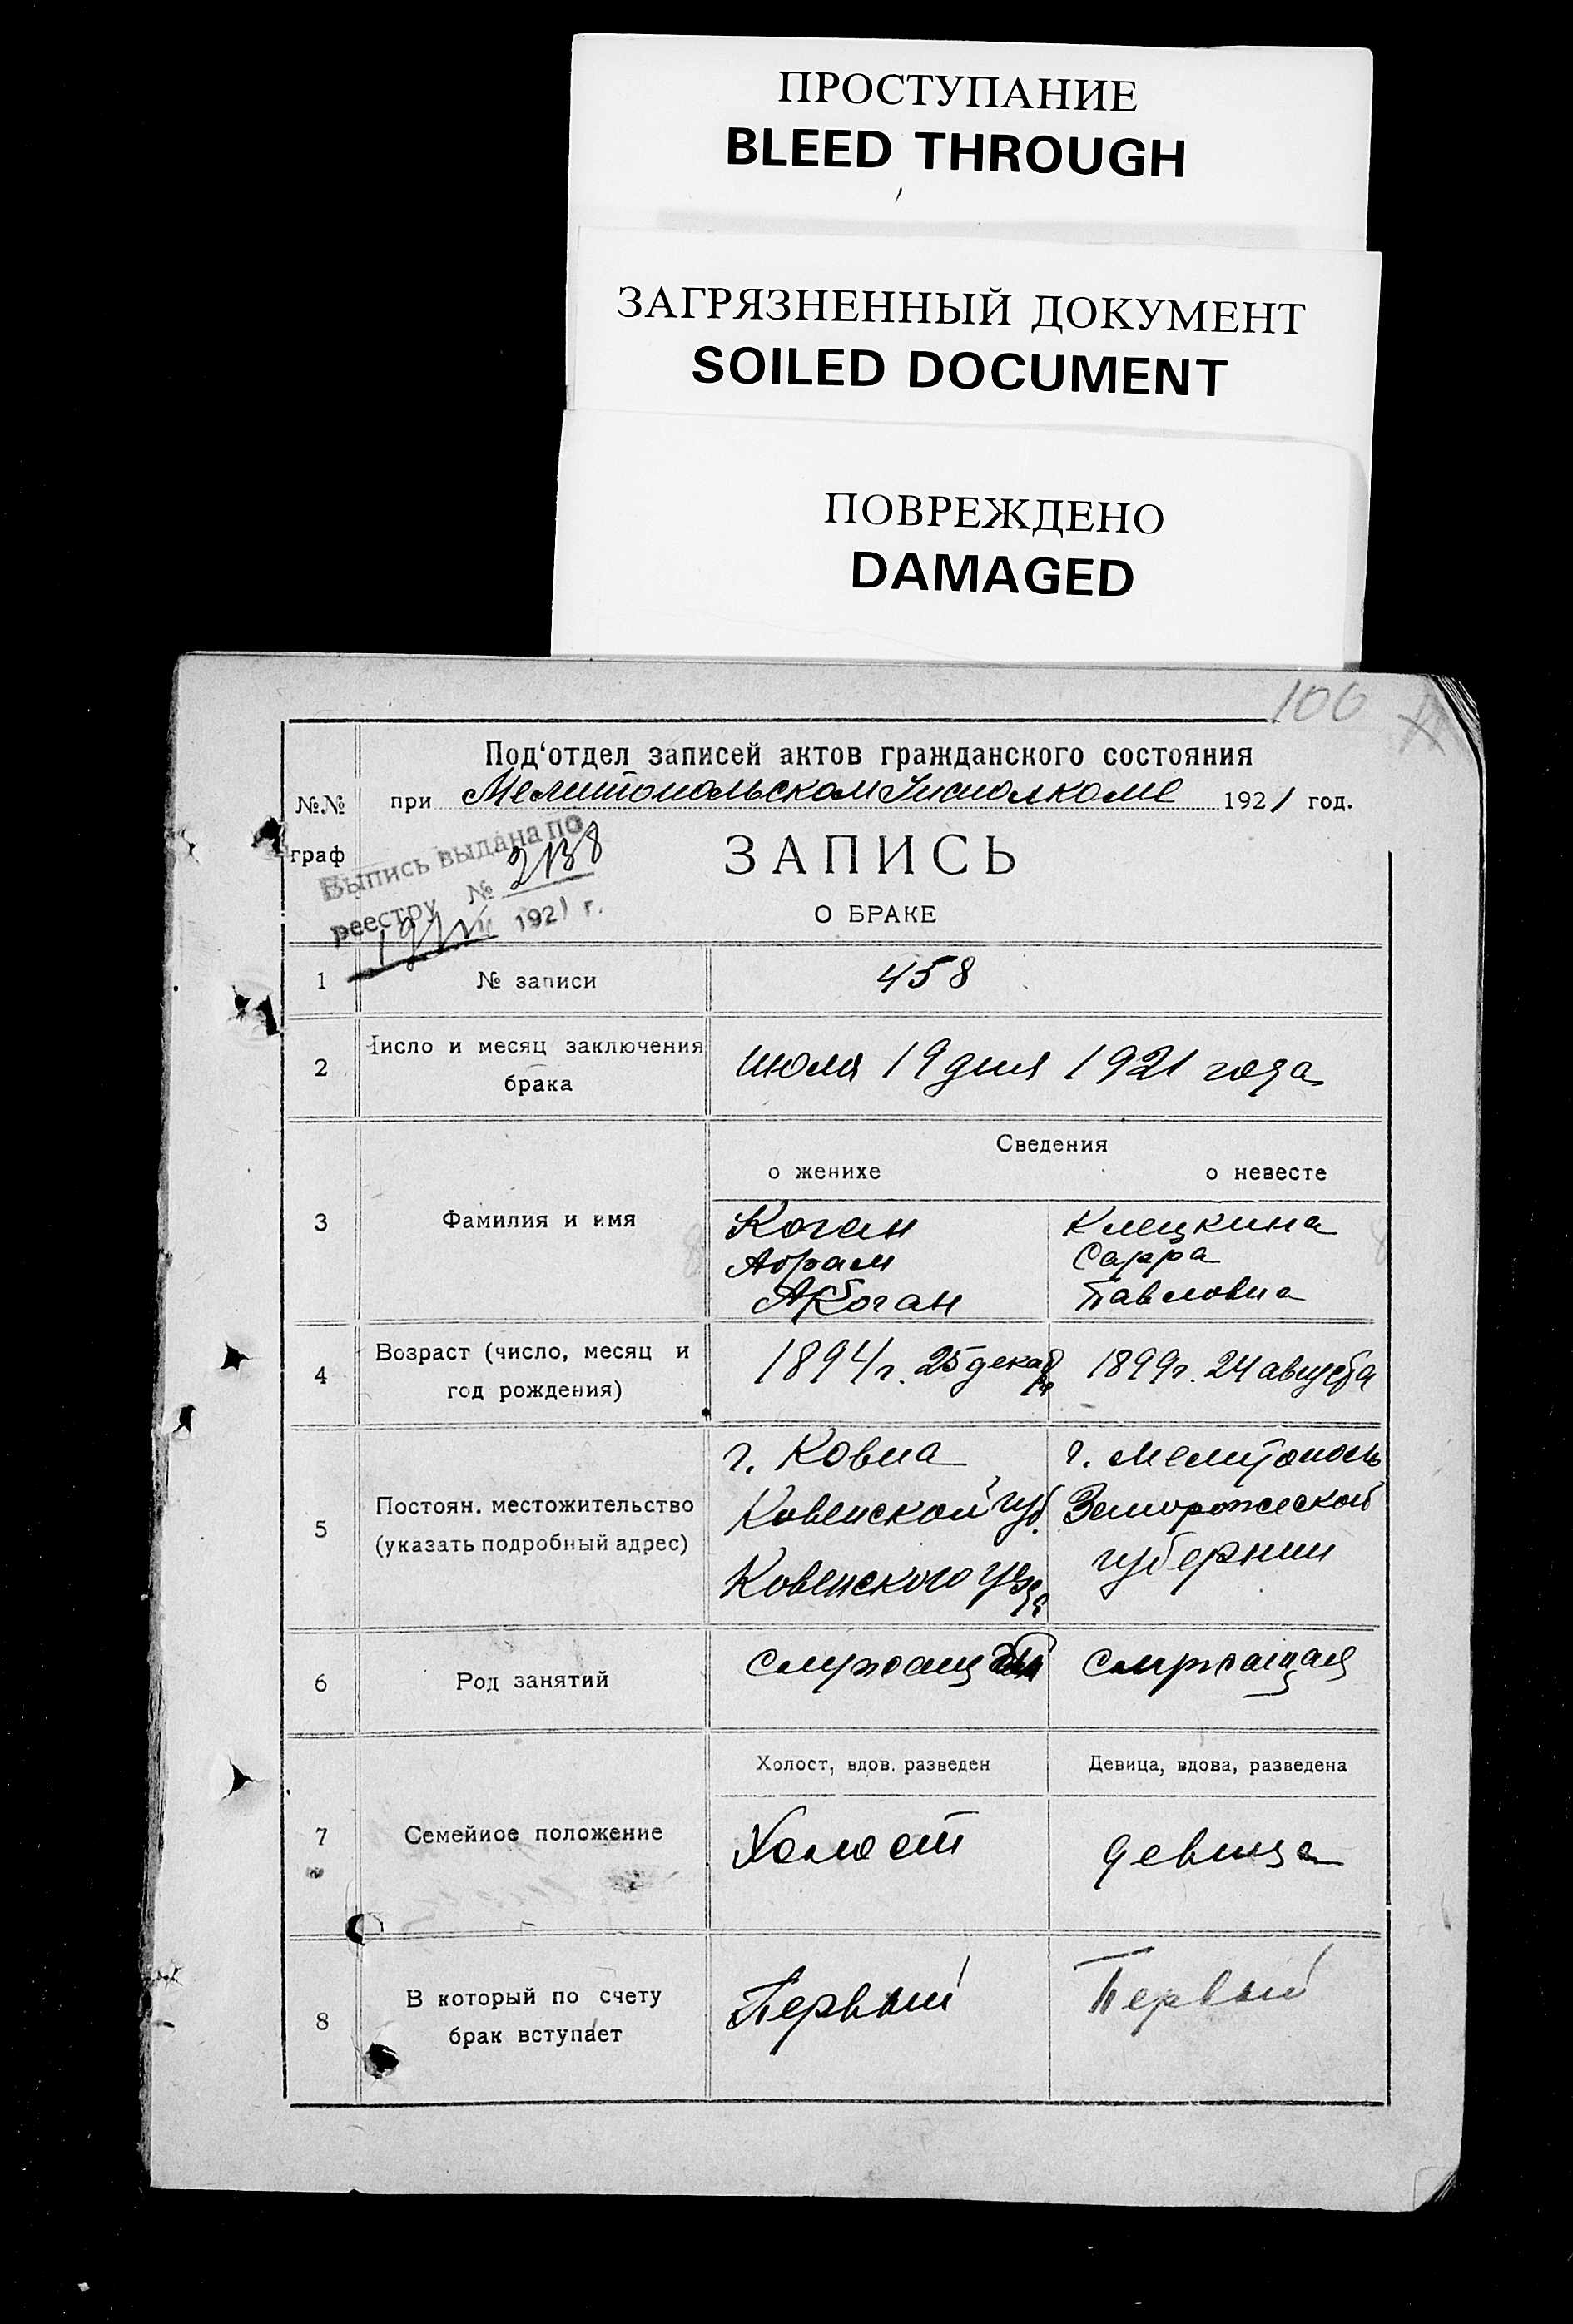 ПРОСТУПАНИЕ
BLEED THROUGH
ЗАГРЯЗНЕННЫЙ ДОКУМЕНТ
SOILED DOCUMENT
ПОВРЕЖДЕНО
DAMAGED
106
№№ граф
Под‘отдел записей актов гражданского состояния
при Мелитопольском Исполкоме 1921 год.
Выпись выдана по
реестру № 2138
19/VII 1921 г.
ЗАПИСЬ
О БРАКЕ
1 № записи 458
2 Число и месяц заключения
брака
июля 19 дня 1921 года
Сведения
о женихе о невесте
3 Фамилия и имя
Коган Клецкина
Абрам Сарра
АКоган Павловна
4 Возраст (число, месяц и
год рождения)
1894 г. 25 декабря 1899 г. 24 августа
5 Постоян. местожительство
(указать подробный адрес)
г. Ковна г. Мелитополь
Ковенской губ. Запорожской
Ковенского уезда губернии
6 Род занятий служащий служащая
Холост, вдов, разведен Девица, вдова, разведена
7 Семейное положение Холост девица
8 В который по счету
брак вступает
Первый Первый